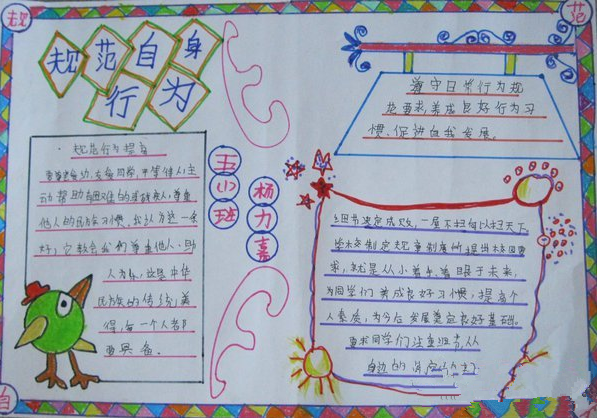 规
范
自
规范自身
行为
规范行为提高
尊重老师
他人的民族习惯。我认为这一条
好，它教会我们尊重他人、助
人为乐，这是中华
民族的传统美
德，每一个人都
要具备。
五
(1)
班
杨
力
嘉
遵守日常行为规
范要求，养成良好行为习
惯，促进自我发展。
细节决定成败，一屋不扫何以扫天下。
学校制定规章制度所提出的
求，就是从小着手，着眼于未来，
为同学们养成良好习惯，提高个
人素质，为今后发展奠定良好基础。
要求同学们注重细节，从
身边的